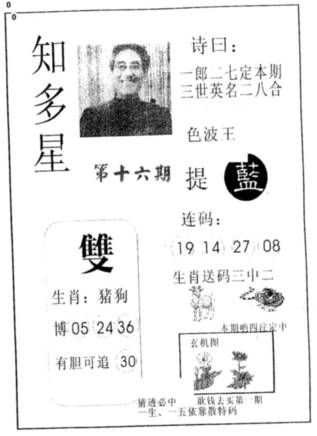 0
0
知多星
诗曰：
一郎二七定本期
三世英名二八合
色波王
第十六期
提 藍
连码：
19 14 27 08
生肖送码三中二
雙
生肖：猪狗
博 05 24 36
有胆可追 30
本期哟四注定中
玄机图
猜透必中 欲钱去买第一期
一生、一五依靠散特码